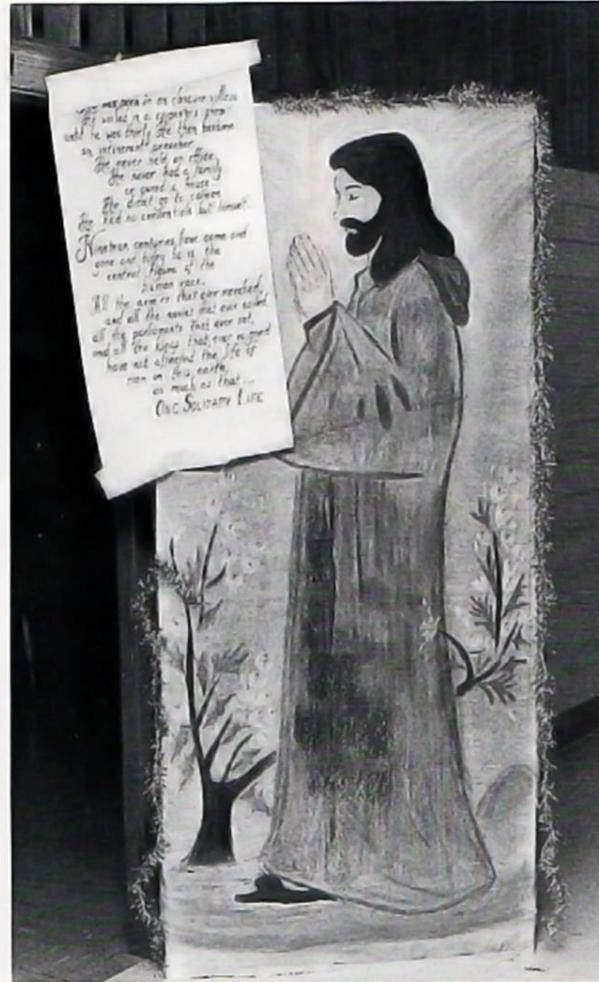 He was born in an obscure village
He worked in a carpenter shop
until he was thirty He then became
an itinerant preacher.
He never held an office,
He never had a family
or owned a house
He didnt go to college
He had no credentials but himself.
Nineteen centuries have come and
gone and today he is the
central figure of the
human race.
All the armies that ever marched,
and all the navies that ever sailed
all the parliaments that ever sat,
and all the kings that ever reigned
have not affected the life of
man on this earth,
as much as that ...
ONE SOLITARY LIFE